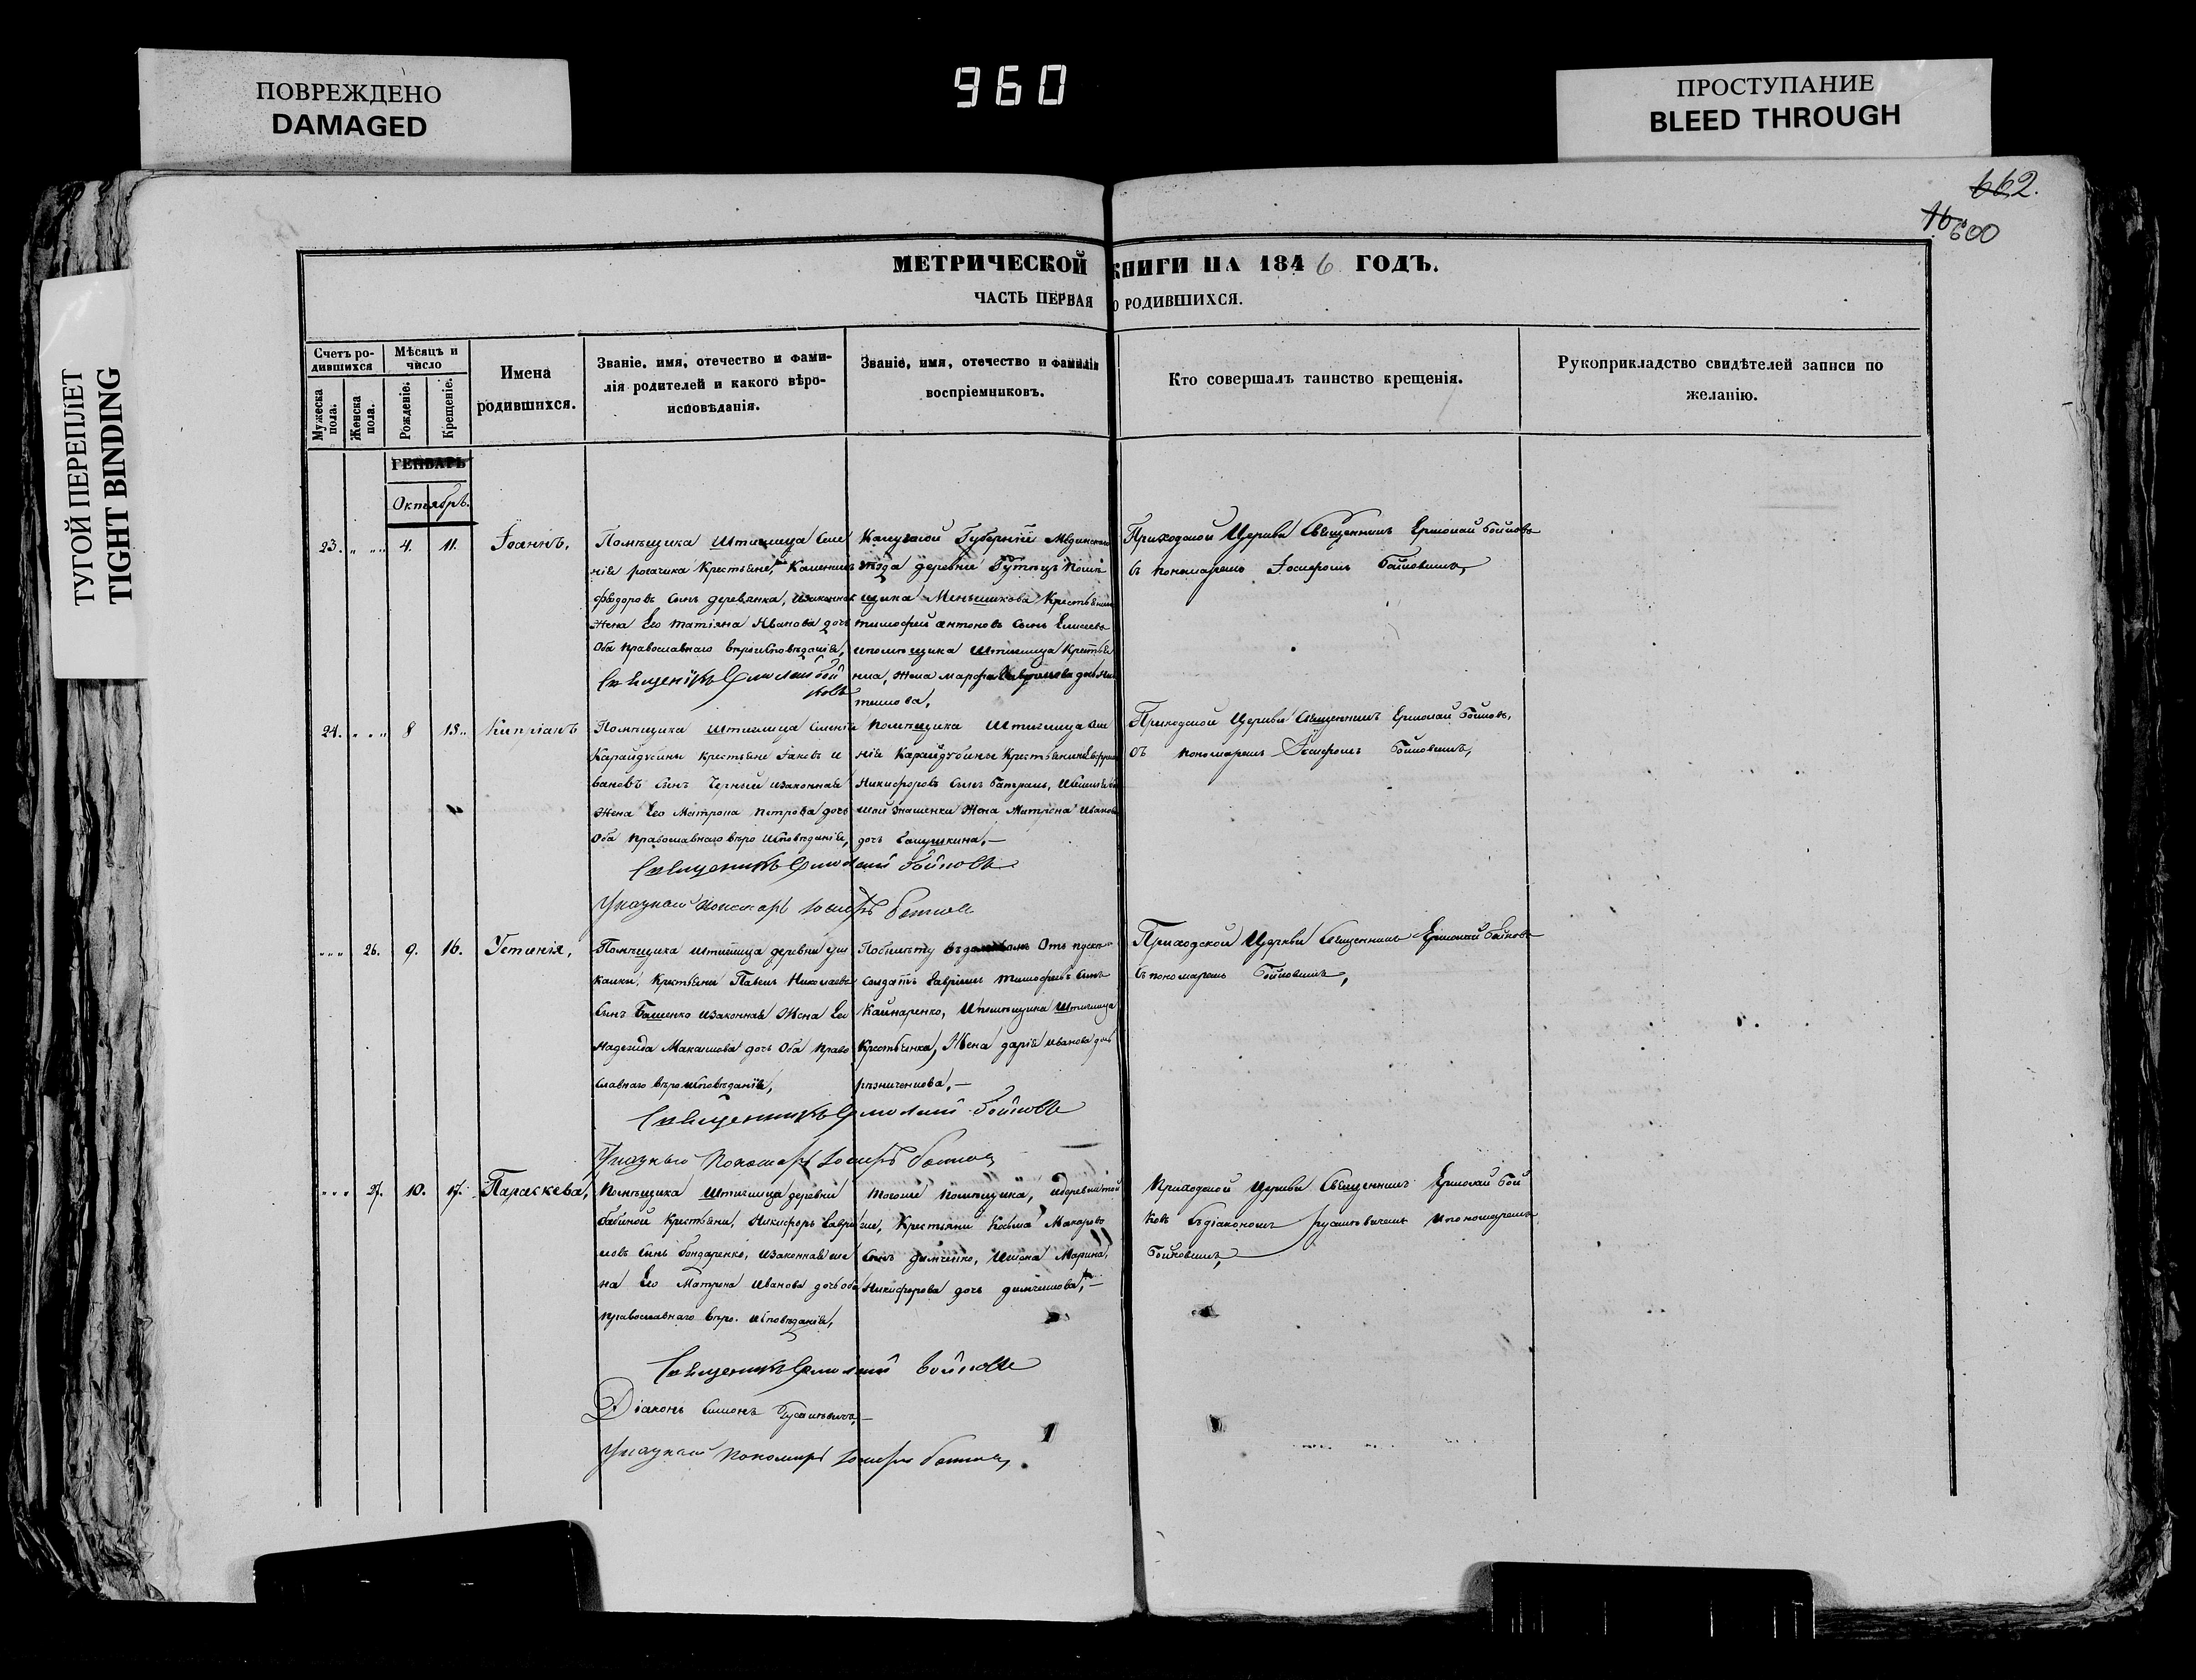 ПОВРЕЖДЕНО
DAMAGED
960
ПРОСТУПАНИЕ
BLEED THROUGH
ТУГОЙ ПЕРЕПЛЕТ
TIGHT BINDING
662.
16
600
МЕТРИЧЕСКОЙ КНИГИ НА 1846 ГОДЪ.
ЧАСТЬ ПЕРВАЯ О РОДИВШИХСЯ.
Счетъ ро-
дившихся
Мужеска
пола.
Женска
пола.
Мѣсяцъ и
число
Рожденіе.
Крещеніе.
Имена
родившихся.
Званіе, имя, отечество и фами-
лія родителей и какого вѣро-
исповѣданія.
Званіе, имя, отечество и фамилія
воспріемниковъ.
Кто совершалъ таинство крещенія.
Рукоприкладство свидѣтелей записи по
желанію.
ГЕНВАРЬ
Октябрь.
23. 4. 11. Іоаннъ,
Помѣщика Штиглица
Крестьяне,
Федоровъ сынъ деревянка, изаконная
Жена Его Татіяна Иванова дочь
Оба православнаго вѣроисповѣданія,
Священникъ Ермолай Бой
ковъ
Калужской Губерніи Мединскаго
уѣзда деревни Помѣ
щика Меньшикова Крестьянинъ
тимофей антоновъ сынъ Елисеевъ
ипомѣщика Штиглица Крестья
нина, жена марфа дочь
Приходской Церкви Священникъ Ермолай Бойковъ
съ пономаремъ Іосифомъ Бойковымъ,
24. 8 13. Кипріанъ
Помѣщика Штиглица Имѣнія
Карайдубины крестьяне Іаковъ И
вановъ сынъ Черный изаконная
Жена Его Матрона Петрова дочь
Оба православнаго вѣро исповѣданія,
Священникъ Ермолай Бойковъ
Указный пономарь Іосифъ Бойковъ
Помѣщика Штиглица Име
нія Карайдубины Крестьянинъ
Никифоровъ сынъ
Знаменки Жена Матрона Иванова
дочь
Приходской Церкви Священникъ Ермолай Бойковъ,
съ пономаремъ Іосифомъ Бойковымъ,
26. 9. 16. Устинія,
Помѣщика Штиглица деревни
Крестьяне Павелъ Николаевъ
сынъ Башенко изаконная Жена Его
Надежда Максимова дочь Оба право
славнаго вѣро исповѣданія,
Священникъ Ермолай Бойковъ
Указный Пономарь Іосифъ Бойковъ
По билету Отъ
солдатъ Гавріилъ Тимофеевъ сынъ
Кайнаренко, Ипомѣщика Штиглица
Крестьянка, Жена дарія иванова дочь
рѣзниченкова,
Приходской Церкви Священникъ Ермолай Бойковъ
съ пономаремъ Бойковымъ,
27. 10. 17. Параскева,
Помѣщика Штиглица деревни
Бабиной Крестьяне, Никифоръ Гаври
ловъ сынъ бондаренко, изаконная же
на Его Матрона Иванова дочь оба
православнаго вѣро. исповѣданія,
Священникъ Ермолай Бойковъ
Діаконъ Симонъ
Указный Пономарь Іосифъ Бойковъ
Тогоже помѣщика, идеревни той
же, Крестьяни Косма Макаровъ
сынъ димченко, Ижена Марина,
Никифорова дочь димченкова,
Приходской Церкви Священникъ Ермолай Бой
ковъ съдіакономъ ипономаремъ
Бойковымъ,